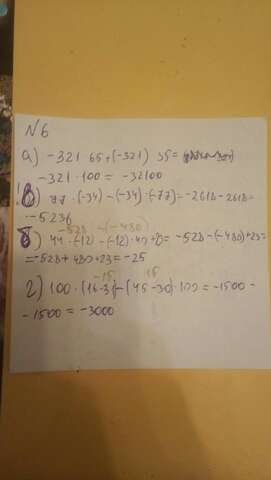 N6
а) -321 65+(-321) 35=
-321 · 100 = -32100
в) 77 · (-34) - (-34) · (-77) = -2618 - 2618 =
-5236
-528 -(-480)
б) 44 · (-12) - (-12) · 40 + 23 = -528 - (-480) + 23 =
= -528 + 480 + 23 = -25
-15 15
г) 100 · (16-31) - (45-30) · 100 = -1500 -
- 1500 = -3000